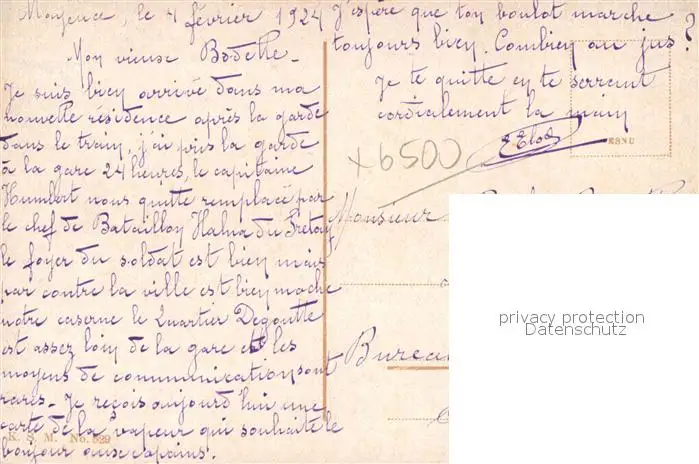 Mayence, le 4 février 1924
Mon vieux Bodette.
Je suis bien arrivé dans ma
nouvelle résidence après la garde
dans le train, j'ai pris la garde
à la gare 24 heures, le capitaine
Humbert nous quitte remplacé par
le chef de Bataillon Halna du Fretay
le foyer du soldat est bien mais
par contre la ville est bien moche
notre caserne le Quartier Degoutte
est assez loin de la gare et les
moyens de communication sont
rares. Je reçois aujourd'hui une
carte de la vapeur qui souhaite le
bonjour aux copains.
K. S. M. No. 529
J'espère que ton boulot marche
toujours bien. Combien au jus ?
Je te quitte en te serrant
cordialement la main
ESNU
x6500
Monsieur
Bureau
privacy protection
Datenschutz